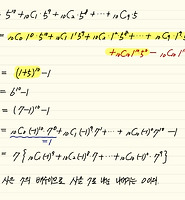 5¹⁰+₁₀C₁·5⁹+₁₀C₂·5⁸+⋯+₁₀C₉5
= ₁₀C₀1⁰·5¹⁰+₁₀C₁1¹5⁹+₁₀C₂1²·5⁸+⋯+₁₀C₉1⁹5¹
+₁₀C₁₀1¹⁰5⁰ - ₁₀C₁₀1
= (1+5)¹⁰-1
= 6¹⁰-1
= (7-1)¹⁰-1
= ₁₀C₀(-1)¹⁰7⁰+₁₀C₁(-1)⁹7¹+⋯+₁₀C₁₀(-1)⁰7¹⁰-1
=1
= 7{₁₀C₁(-1)⁹+₁₀C₂(-1)⁸7+⋯+₁₀C₁₀(-1)⁰·7⁹}
7의 배수이므로 7로 나눈 나머지는 0이다.